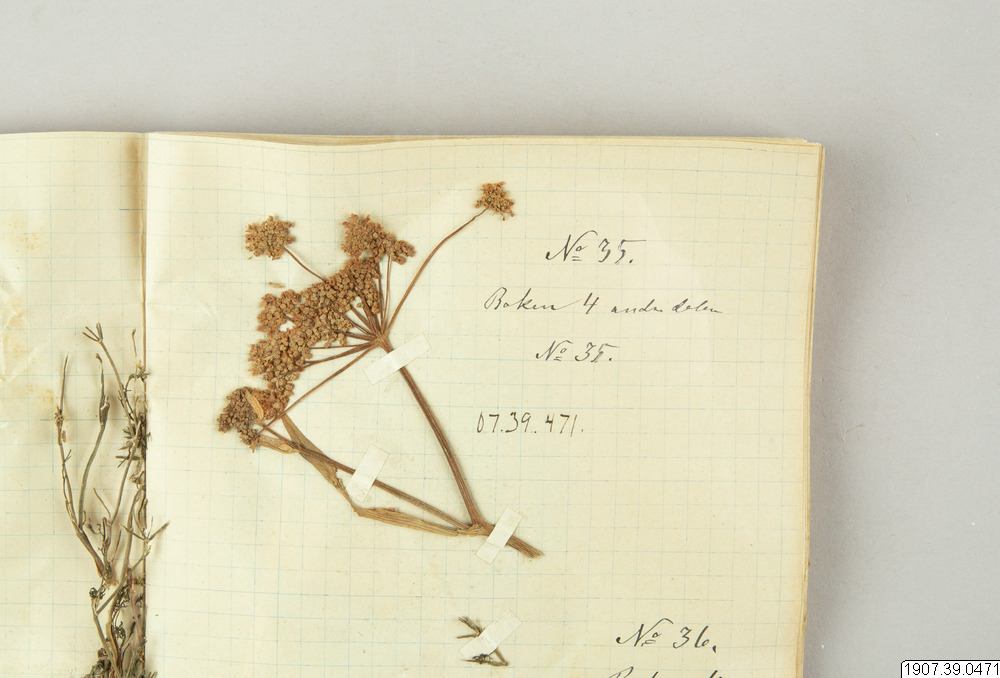 No 35.
Boken 4 andra delen
No 35.
07.39.471.
No 36.
1907.39.0471